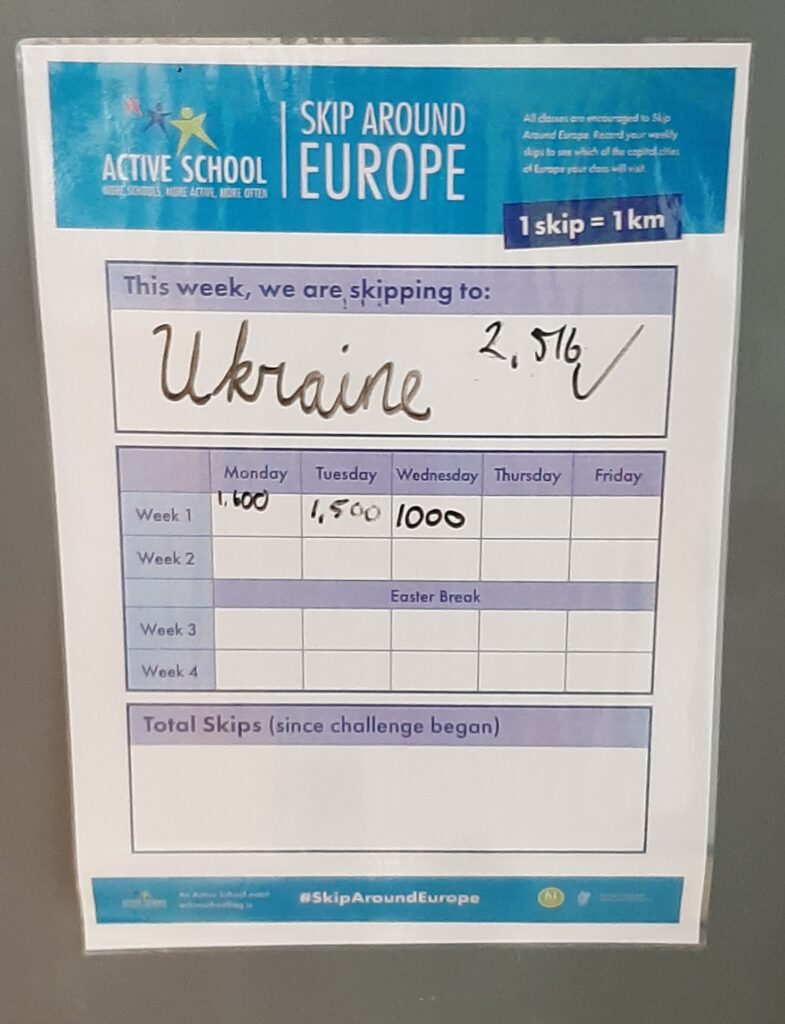 ACTIVE SCHOOL
MORE SCHOOLS, MORE ACTIVE, MORE OFTEN
SKIP AROUND
EUROPE
All classes are encouraged to Skip
Around Europe. Record your weekly
skips to see which of the capital cities
of Europe your class will visit.
1 skip = 1 km
This week, we are skipping to:
Ukraine 2,516 ✓
Monday Tuesday Wednesday Thursday Friday
Week 1 1,600 1,500 1000
Week 2
Easter Break
Week 3
Week 4
Total Skips (since challenge began)
ACTIVE SCHOOL
An Active School event
activeschoolflag.ie
#SkipAroundEurope